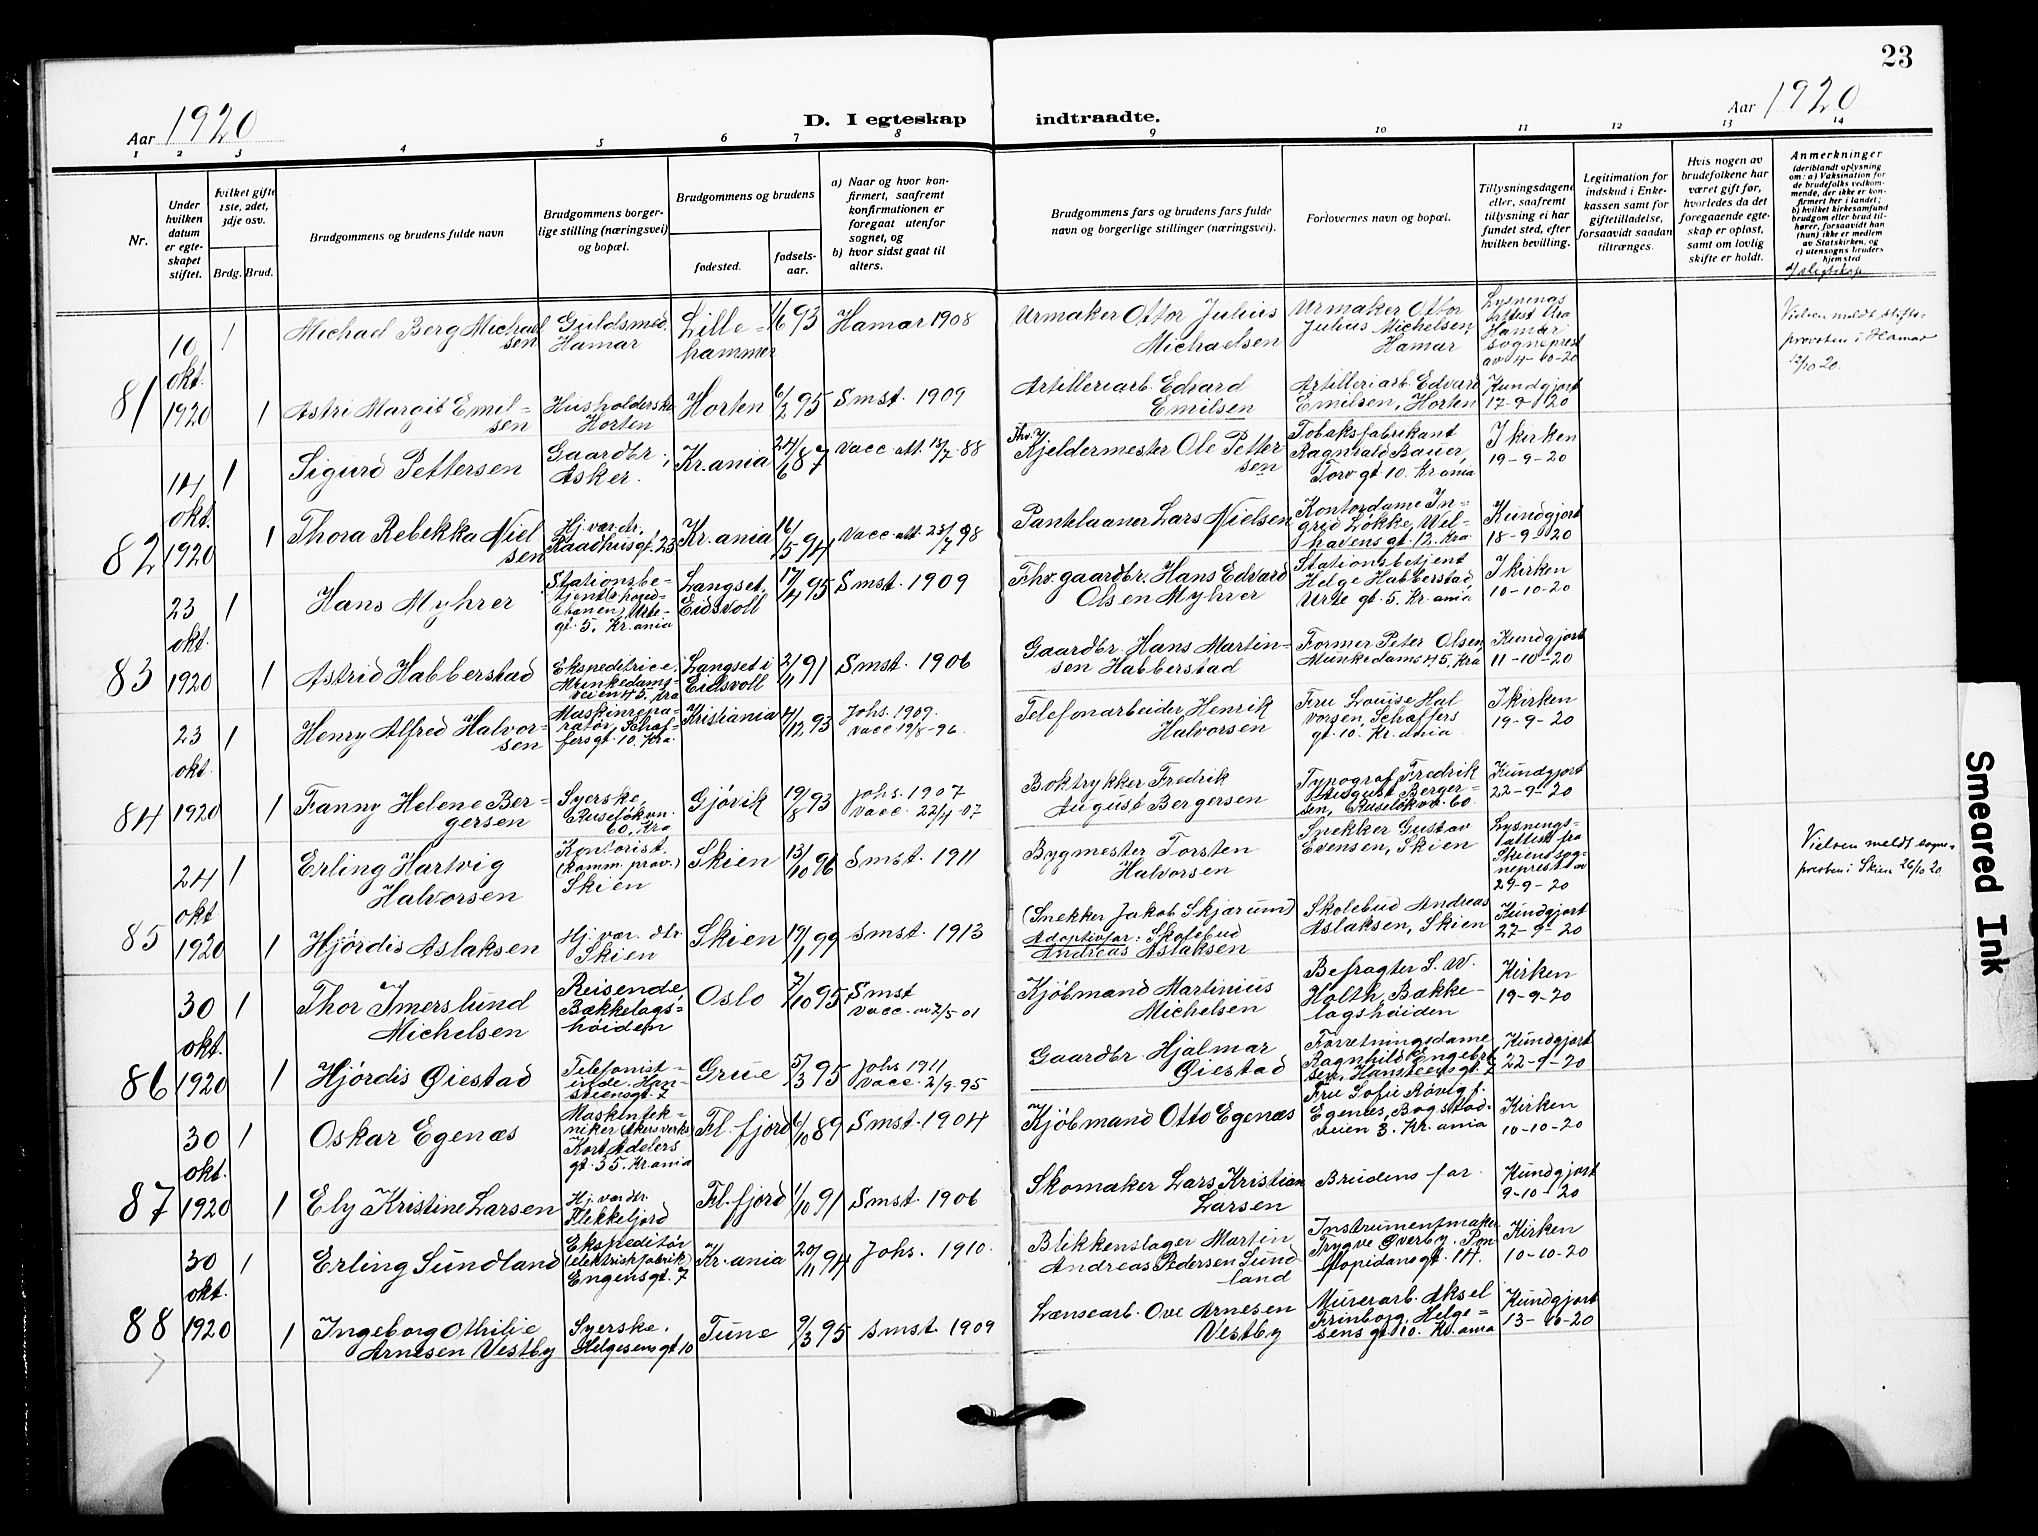 23
Aar 1920
D. I egteskap indtraadte.
Aar 1920
1 2 3 4 5 6 7 8 9 10 11 12 13 14
Nr.
Under
hvilken
datum
er egte-
skapet
stiftet.
hvilket gifte
1ste, 2det,
3dje osv.
Brdg. Brud.
Brudgommens og brudens fulde navn
Brudgommens borger-
lige stilling (næringsvei)
og bopæl.
Brudgommens og brudens
fødested.
fødsels-
aar.
a) Naar og hvor kon-
firmert, saafremt
konfirmationen er
foregaat utenfor
sognet, og
b) hvor sidst gaat til
alters.
Brudgommens fars og brudens fars fulde
navn og borgerlige stillinger (næringsvei).
Forlovernes navn og bopæl.
Tillysningsdagene
eller, saafremt
tillysning ei har
fundet sted, efter
hvilken bevilling.
Legitimation for
indskud i Enke-
kassen samt for
giftetilladelse,
forsaavidt saadan
tiltrænges.
Hvis nogen av
brudefolkene har
været gift før,
hvorledes da det
foregaaende egte-
skap er opløst,
samt om lovlig
skifte er holdt.
Anmerkninger
(deriblandt oplysning
om: a) Vaksination for
de brudefolks vedkom-
mende, der ikke er kon-
firmert her i landet;
b) hvilket kirkesamfund
brudgom eller brud til-
hører, forsaavidt han
(hun) ikke er medlem
av Statskirken, og
c) utensogns bruders
hjemsted
81
10
okt.
1920
1 Michael Berg Michael
sen
Guldsmed,
Hamar
Lille-
hammer
93
Hamar 1908
Urmaker Ottor Julius
Michaelsen
Urmaker Ottor
Julius Michelsen,
Hamar
Lysnings
attest fra
Hamar
sogneprest
av 4-10-20
Vielsen meldt stifts-
provsten i Hamar
12/10 20.
1 Astri Margit Emil-
sen
Husholderske
Horten
Horten
95
Smst. 1909
Artilleriarb. Edvard
Emilsen
Artilleriarb. Edvard
Emilsen, Horten
Kundgjort
17-9-20
82
14
okt.
1920
1 Sigurd Pettersen
Gaardbr.,
Asker.
Kr.ania
24/6 87
Vacc. att. 13/7. 88
Fhv. Kjeldermester Ole Petter-
sen
Tobaksfabrikant
Ragnvald Bauer,
Torvgt. 10. Kr.ania
I kirken
19-9-20
1 Thora Rebekka Niel
sen
Hj. vær. dtr.
Raadhusgt. 23
Kr.ania
16/5 94
Vacc. att. 23/7 98
Pantelaaner Lars Nielsen
Kontordame In-
grid Løkke, Wel-
havensgt. 12. Kra
Kundgjort
18-9-20
83
23
okt.
1920
1 Hans Myhrer
Stationsbe-
tjent
gt. 5. Kr.ania
Langset,
Eidsvoll
17/4 95
Smst. 1909
Fhv. gaardbr. Hans Edvard
Olsen Myhrer
Stationsbetjent
Helge Habberstad,
Urtegt. 5. Kr.ania
I kirken
10-10-20
1 Astrid Habberstad
Ekspeditrice,
Munkedams-
veien 45. Kra
Langset i
Eidsvoll
2/11 91
Smst. 1906
Gaardbr. Hans Martin-
sen Habberstad
Former Peter Olsen,
Munkedams 45. Kra
Kundgjort
11-10-20
84
23
okt.
1920
1 Henry Alfred Halvor-
sen
Maskinrepa-
ratør, Schäf-
fersgt. 10. Kra.
Kristiania
4/12 93
Johs. 1909.
Vacc 19/8-96.
Telefonarbeider Henrik
Halvorsen
Fru Louise Hal
vorsen, Schäffers
gt. 10. Kr.ania
I kirken
19-9-20
1 Fanny Helene Ber-
gersen
Syerske,
Ruseløkvn.
60. Kra
Gjøvik
19/8 93
Johs. 1907
Vacc. 22/4-07
Boktrykker Fredrik
August Bergersen
Typograf Fredrik
August Berger-
sen, Ruseløkvn. 60.
Kundgjort
22-9-20
85
24
okt
1920
1 Erling Hartvig
Halvorsen
Kontorist
(komm. prov.)
Skien
Skien
13/10 96
Smst. 1911
Bygmester Torsten
Halvorsen
Snekker Gustav
Evensen, Skien
Lysnings-
attest fra
Skiens sog-
neprest av
29-9-20
Vielsen meldt sogne-
presten i Skien 26/10 20.
1 Hjørdis Aslaksen
Hj. vær. dtr.
Skien
Skien
17/1 99
Smst. 1913
(Snekker Jakob Skjærum)
Adoptivfar: Skolebud
Andreas Aslaksen
Skolebud Andreas
Aslaksen, Skien
Kundgjort
27-9-20
86
30
okt.
1920
1 Thor Imerslund
Michelsen
Reisende,
Bækkelags-
høiden
Oslo
7/10 95
Smst
Vacc. av 2/5 01
Kjøbmand Martinius
Michelsen
Befragter S. W.
Holth, Bække-
lagshøiden
Kirken
19-9-20
1 Hjørdis Øiestad
Telefonist-
inde. Han-
steensgt. 7
Grue
5/3 95
Johs 1911
Vacc. 2/9-95
Gaardbr. Hjalmar
Øiestad
Forretningsdame
Ragnhild Engebret
sen, Hansteensgt. 7
Kundgjort
22-9-20
87
30
okt.
1920
1 Oskar Egenæs
Maskintek-
niker (Akersverks)
Kort Adelers
gt. 35. Kr.ania
Fl. fjord
6/10 89
Smst. 1904
Kjøbmand Otto Egenæs
Fru Sofie Rövig f.
Egenes, Bogstad-
veien 3. Kr.ania
Kirken
10-10-20
1 Ely Kristine Larsen
Hj. vær dtr.
Flekkefjord
Fl. fjord
1/10 91
Smst. 1906
Skomaker Lars Kristian
Larsen
Brudens far
Kundgjort
9-10-20
88
30
okt.
1920
1 Erling Sundland
Ekspeditør
(elektrisk fabrik)
Engensgt. 7
Kr.ania
20/11 94
Johs. 1910.
Blikkenslager Martin
Andreas Pedersen Sund-
land
Instrumentmaker
Trygve Øverby. Pon-
topidansgt. 14.
Kirken
10-10-20
1 Ingeborg Othilie
Arnesen Vestby
Syerske.
Helgesensgt 10
Tune
9/3 95
Smst. 1909
Lænsearb. Ove Arnesen
Vestby
Murerarb. Aksel
Frinborg, Helge-
sensgt 10. Kr.ania
Kundgjort
13-10-20
Smeared Ink